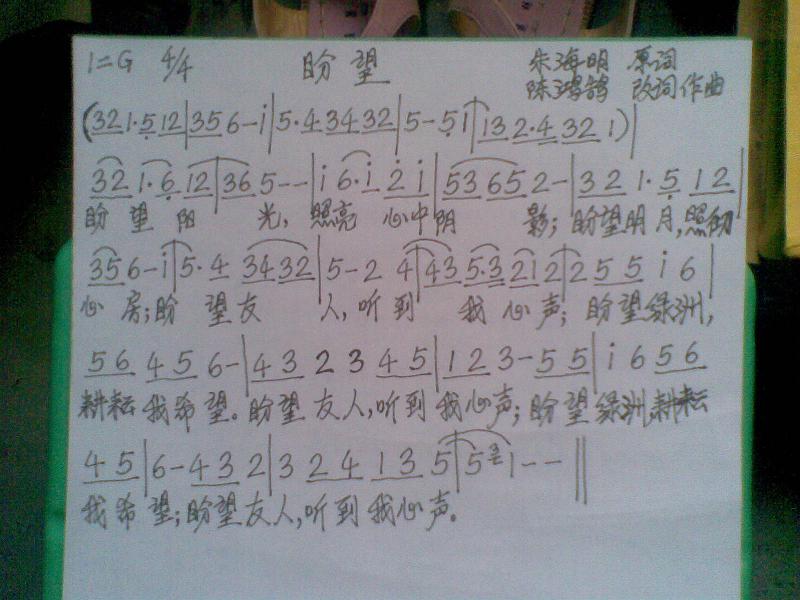 1=G 4/4 盼望 朱海明 原词
陈鸿鹄 改词作曲
(321·512|356-i|5·43432|5-5i|132·4321)|
321·61236|5--|i6·i2i|53652-|321·512
盼望阳光,照亮心中阴影;盼望明月,照彻
356-i|5·43432|5-24|435·3212|255i6|
心房;盼望友人,听到我心声;盼望绿洲,
564566-|432345|123-55|i656
耕耘我希望。盼望友人,听到我心声;盼望绿洲,耕耘
45|6-432|324135|5 1--‖
我希望;盼望友人,听到我心声。